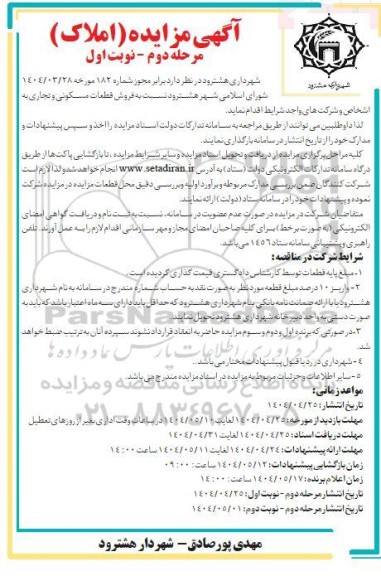 آگهی مزایده (املاک)
مرحله دوم - نوبت اول
شهرداری هشترود
شهرداری هشترود در نظر دارد برابر مجوز شماره ۱۸۲ مورخه ۱۴۰۴/۰۳/۲۸
شورای اسلامی شهر هشترود نسبت به فروش قطعات مسکونی و تجاری به
اشخاص و شرکت های واجد شرایط اقدام نماید.
لذا داوطلبین می توانند از طریق مراجعه به سامانه تدارکات دولت اسناد مزایده را اخذ و سپس پیشنهادات و
مدارک خود را از تاریخ انتشار در سامانه بارگذاری نمایند.
کلیه مراحل برگزاری مزایده از دریافت و تحویل اسناد مزایده و سایر شرایط مزایده، تا بازگشایی پاکت ها از طریق
درگاه سامانه تدارکات الکترونیکی دولت (ستاد) به آدرس www.setadiran.ir انجام خواهد شد و لذا لازم است
شرکت کنندگان ضمن بررسی مدارک مربوطه و برآورد اولیه و بررسی دقیق محل قطعات مزایده در مزایده شرکت
نموده و پیشنهادات خود را در سامانه ستاد (دولت) ارائه نمایند.
متقاضیان شرکت در مزایده در صورت عدم عضویت در سامانه، نسبت به ثبت نام و دریافت گواهی امضای
الکترونیکی (به صورت برخط) برای کلیه صاحبان امضای مجاز و مهر سازمانی اقدام لازم را به عمل آورند. تلفن
راهبری و پشتیبانی سامانه ستاد ۱۴۵۶ می باشد.
شرایط شرکت در مناقصه:
۱- مبلغ پایه قطعات توسط کارشناس دادگستری قیمت گذاری گردیده است.
۲- واریز ۱۰ درصد مبلغ قطعه مورد نظر به صورت نقد به حساب شماره مندرج در سامانه به نام شهرداری
هشترود یا با ارائه ضمانت نامه بانکی بنام شهرداری هشترود که حداقل باید دارای سه ماه اعتبار باشد که باید به
صورت دستی به واحد دبیرخانه شهرداری هشترود تحویل نمایند.
۳- در صورتی که برنده اول و دوم و سوم مزایده حاضر به انعقاد قرارداد نشوند سپرده آنان به ترتیب ضبط خواهد
شد.
۴- شهرداری در رد یا قبول پیشنهادات مختار می باشد.
۵- سایر اطلاعات و جزئیات مربوط به مزایده در اسناد مزایده مندرج می باشد.
مواعد زمانی:
تاریخ انتشار: ۱۴۰۴/۰۴/۲۵
مهلت بازدید از مورخه: ۱۴۰۴/۰۴/۲۵ لغایت ۱۴۰۴/۰۵/۱۰ در ساعات وقت اداری بغیر از روزهای تعطیل
مهلت دریافت اسناد: ۱۴۰۴/۰۴/۲۵ لغایت ۱۴۰۴/۰۴/۳۱
مهلت ارائه پیشنهادات: ۱۴۰۴/۰۴/۲۴ لغایت ۱۴۰۴/۰۵/۱۱ ساعت ۱۴:۰۰
زمان بازگشایی پیشنهادات: ۱۴۰۴/۰۵/۱۲ ساعت: ۰۹:۰۰
زمان اعلام برنده: ۱۴۰۴/۰۵/۱۷ ساعت: ۱۴:۰۰
تاریخ انتشار مرحله دوم - نوبت اول: ۱۴۰۴/۰۴/۲۵
تاریخ انتشار مرحله دوم - نوبت دوم: ۱۴۰۴/۰۵/۰۱
مهدی پورصادق - شهردار هشترود